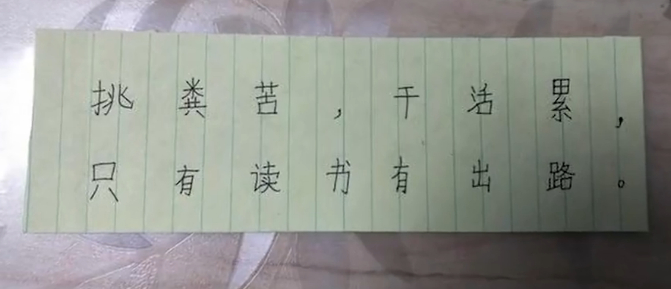 挑粪苦,干活累,
只有读书有出路。